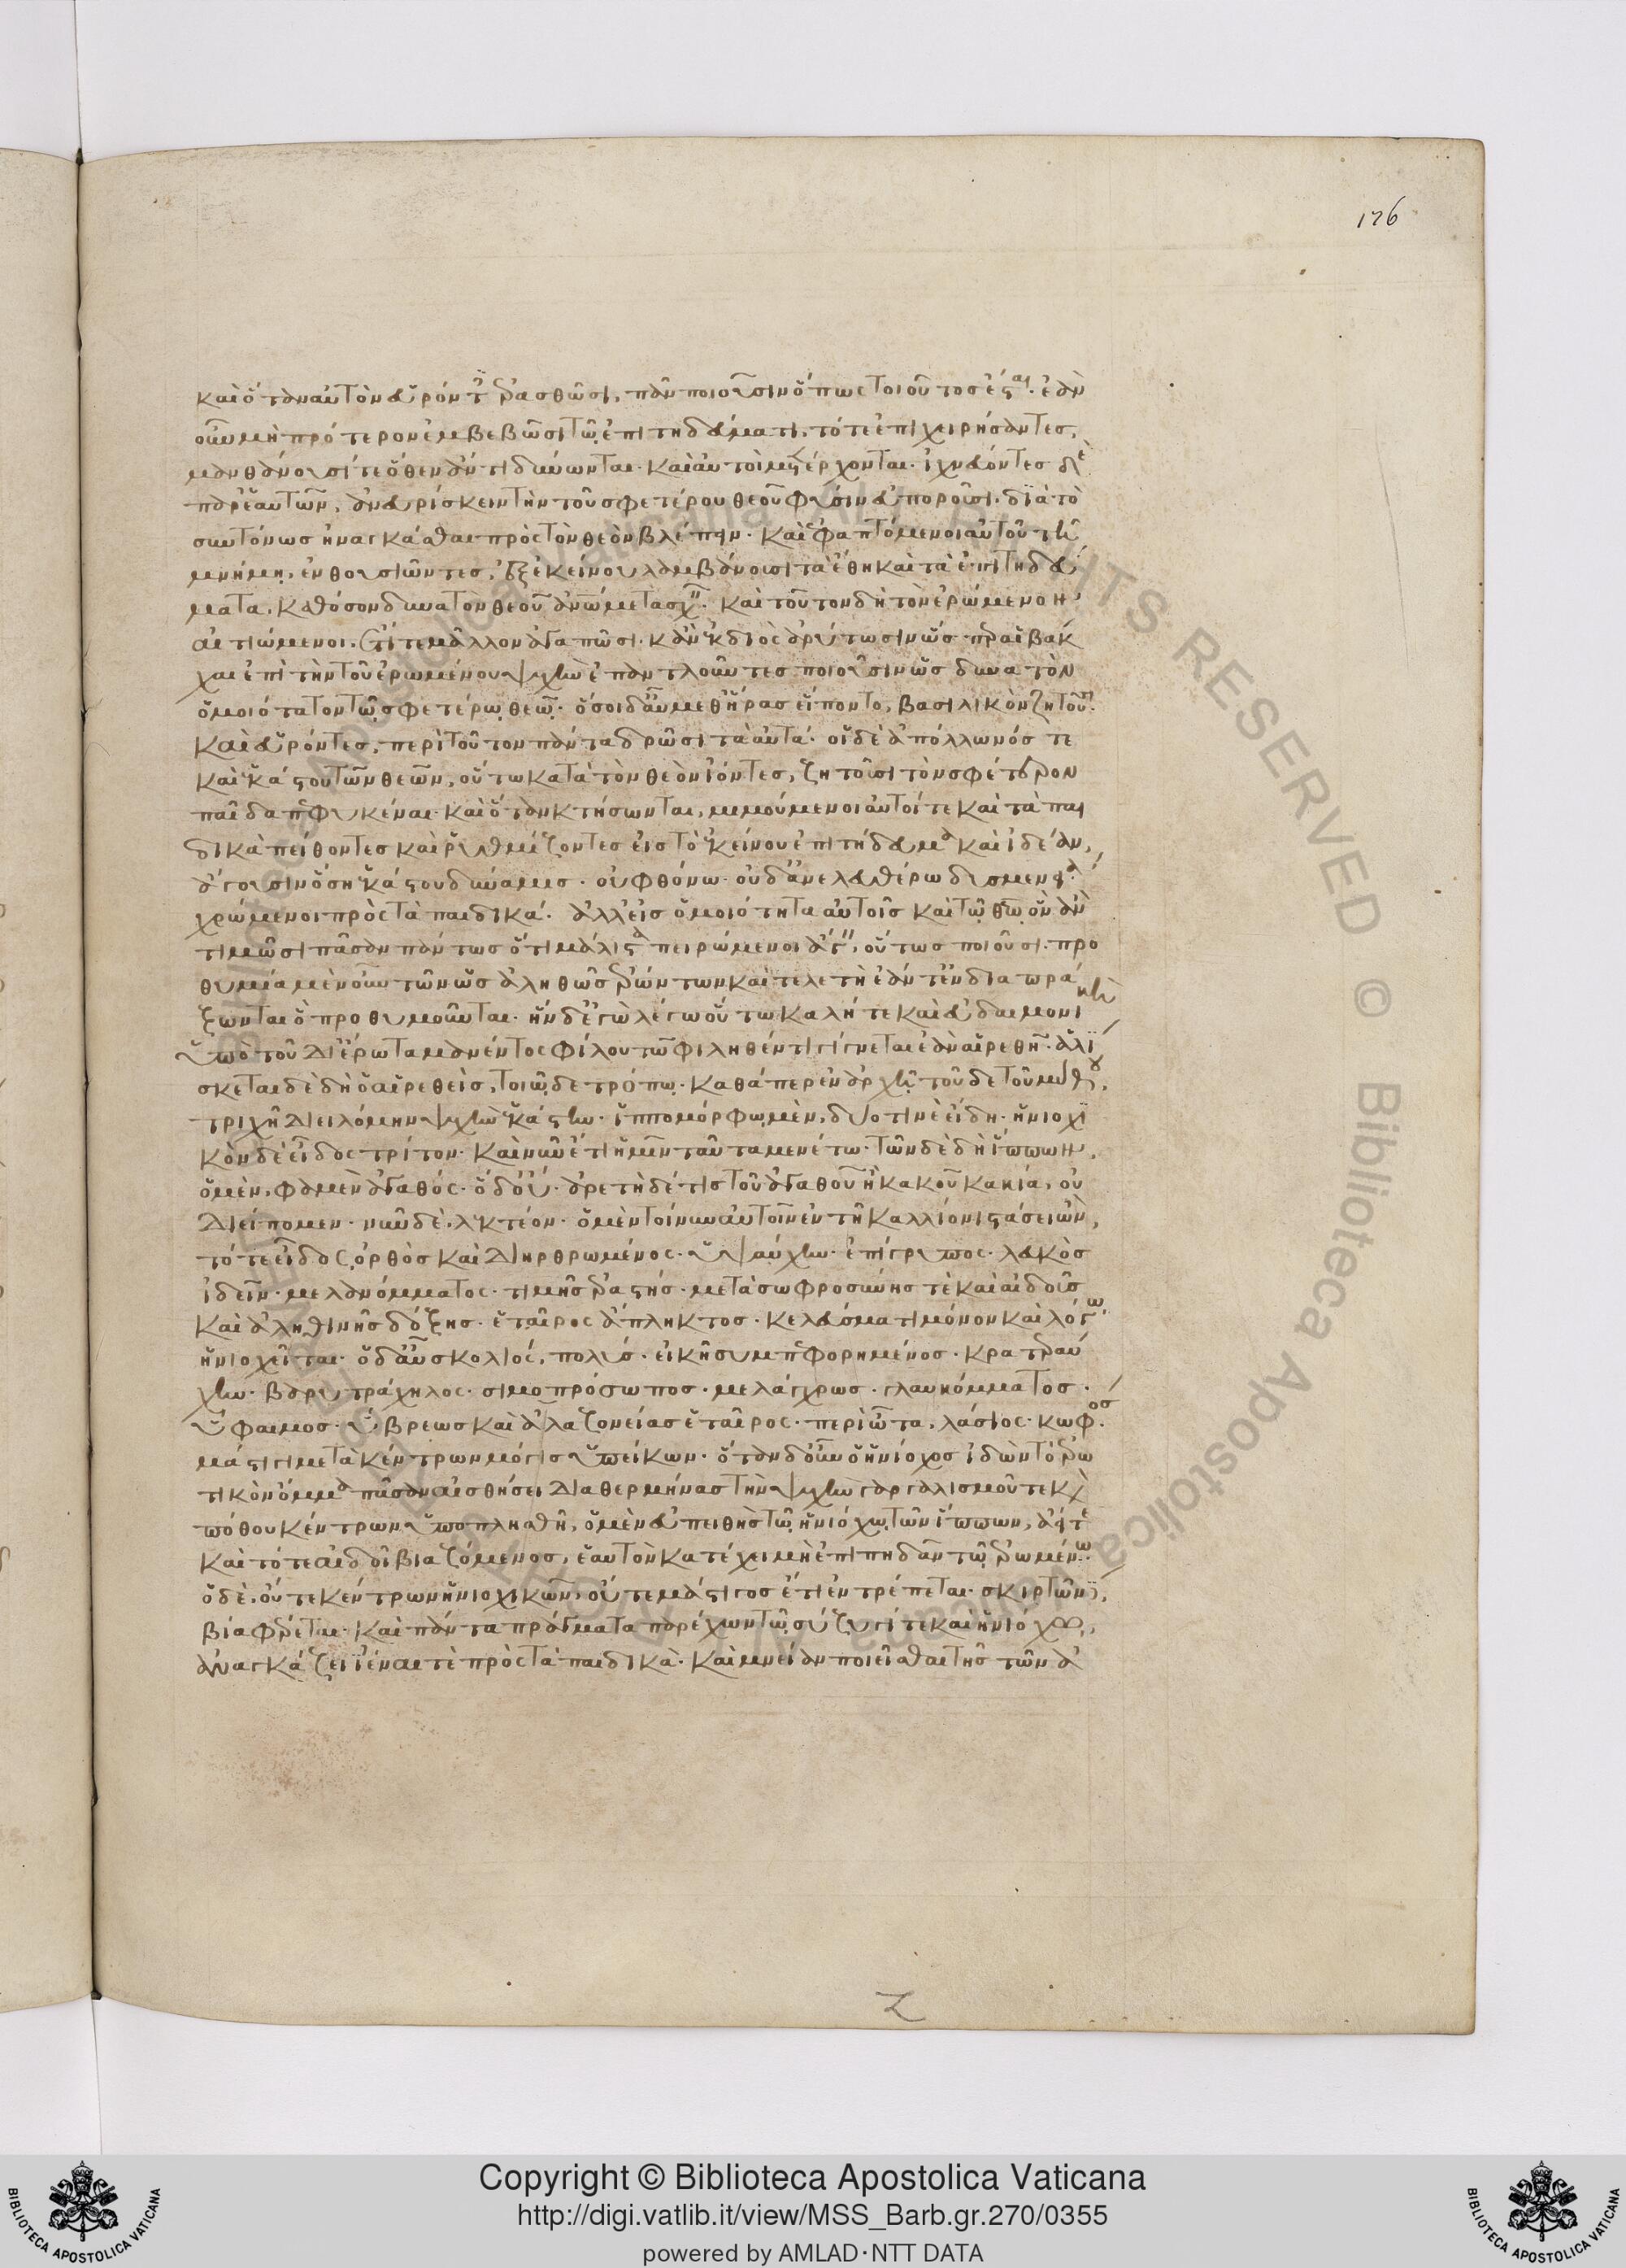 176
καὶ ὅταν αὐτὸν εὑρόντες ἐρασθῶσι, πᾶν ποιοῦσιν ὅπως τοιοῦτος ἔσται. ἐὰν
οὖν μὴ πρότερον ἐμβεβῶσι τῷ ἐπιτηδεύματι, τότε ἐπιχειρήσαντες,
μανθάνουσί τε ὅθεν ἄν τι δύνωνται. καὶ αὐτοὶ μετέρχονται. ἰχνεύοντες δὲ
παρ' ἑαυτῶν, ἀνευρίσκειν τὴν τοῦ σφετέρου θεοῦ φύσιν εὐποροῦσι. διὰ τὸ
συντόνως ἠναγκάσθαι πρὸς τὸν θεὸν βλέπειν. καὶ ἐφαπτόμενοι αὐτοῦ τῇ
μνήμῃ, ἐνθουσιῶντες, ἐξ ἐκείνου λαμβάνουσι τὰ ἔθη καὶ τὰ ἐπιτηδεύ
ματα, καθόσον δυνατὸν θεοῦ ἀνθρώπῳ μετασχεῖν. καὶ τοῦτον δὴ τὸν ἐρώμενον
αἰτιώμενοι, ἔτι τε μᾶλλον ἀγαπῶσι. κἂν ἐκ διὸς ἀρύτωσιν ὥσπερ αἱ βάκ
χαι ἐπὶ τὴν τοῦ ἐρωμένου ψυχὴν ἐπαντλοῦντες ποιοῦσιν ὡς δυνατὸν
ὁμοιότατον τῷ σφετέρῳ θεῷ. ὅσοι δ' αὖ μεθ' ἥρας εἵποντο, βασιλικὸν ζητοῦσι.
καὶ εὑρόντες, περὶ τοῦτον πάντα δρῶσι τὰ αὐτά. οἱ δὲ ἀπόλλωνός τε
καὶ ἑκάστου τῶν θεῶν, οὕτω κατὰ τὸν θεὸν ἰόντες, ζητοῦσι τὸν σφέτερον
παῖδα πεφυκέναι. καὶ ὅταν κτήσωνται, μιμούμενοι αὐτοί τε καὶ τὰ παι
δικὰ πείθοντες καὶ ῥυθμίζοντες εἰς τὸ ἐκείνου ἐπιτήδευμα καὶ ἰδέαν,
ἄγουσιν ὅση ἑκάστου δύναμις. οὐ φθόνῳ. οὐδ' ἀνελευθέρῳ δυσμενείᾳ
χρώμενοι πρὸς τὰ παιδικά. ἀλλ' εἰς ὁμοιότητα αὑτοῖς καὶ τῷ θεῷ ὃν ἂν
τιμῶσι πᾶσαν πάντως ὅτι μάλιστα πειρώμενοι ἄγειν, οὕτως ποιοῦσι. προ
θυμία μὲν οὖν τῶν ὡς ἀληθῶς ἐρώντων καὶ τελετὴ ἐάν γ' ἐνδιαπρά
ξωνται ὃ προθυμοῦνται. ἣν δ' ἐγὼ λέγω οὕτω καλή τε καὶ εὐδαιμονικὴ
ὑπὸ τοῦ δι' ἔρωτα μανέντος φίλου τῷ φιληθέντι γίγνεται ἐὰν αἱρεθῇ. ἁλί
σκεται δὲ δὴ ὁ αἱρεθεὶς, τοιῷδε τρόπῳ. καθάπερ ἐν ἀρχῇ τοῦδε τοῦ μύθου,
τριχῇ διειλόμην ψυχὴν ἑκάστην. ἱππομόρφω μὲν, δύο τινὲ εἴδη. ἡνιοχι
κὸν δὲ εἶδος τρίτον. καὶ νῦν ἔτι ἡμῖν ταῦτα μενέτω. τῶν δὲ δὴ ἵππων,
ὁ μὲν, φαμὲν ἀγαθός. ὁ δ' οὔ. ἀρετὴ δέ τις τοῦ ἀγαθοῦ ἢ κακοῦ κακία, οὐ
διείπομεν. νῦν δὲ, λεκτέον. ὁ μὲν τοίνυν αὐτοῖν ἐν τῇ καλλίονι στάσει ὢν,
τό τε εἶδος ὀρθὸς καὶ διηρθρωμένος. ὑψαύχην. ἐπίγρυπος. λευκὸς
ἰδεῖν. μελανόμματος. τιμῆς ἐραστής. μετὰ σωφροσύνης τὲ καὶ αἰδοῦς
καὶ ἀληθινῆς δόξης. ἑταῖρος ἄπληκτος. κελεύσματι μόνον καὶ λόγῳ
ἡνιοχεῖται. ὁ δ' αὖ σκολιός, πολύς. εἰκῇ συμπεφορημένος. κρατεραύ
χην. βαρυτράχηλος. σιμοπρόσωπος. μελάγχρως. γλαυκόμματος.
ὕφαιμος. ὕβρεως καὶ ἀλαζονείας ἑταῖρος. περὶ ὦτα, λάσιος. κωφός.
μάστιγι μετὰ κέντρων μόγις ὑπείκων. ὅταν δ' οὖν ὁ ἡνίοχος ἰδὼν τὸ ἐρω
τικὸν ὄμμα πᾶσαν αἰσθήσει διαθερμήνας τὴν ψυχὴν γαργαλισμοῦ τε καὶ
πόθου κέντρων ὑποπλησθῇ, ὁ μὲν εὐπειθὴς τῷ ἡνιόχῳ τῶν ἵππων, ἀεί τε
καὶ τότε αἰδοῖ βιαζόμενος, ἑαυτὸν κατέχει μὴ ἐπιπηδᾶν τῷ ἐρωμένῳ.
ὁ δὲ, οὔτε κέντρων ἡνιοχικῶν, οὔτε μάστιγος ἔτι ἐντρέπεται. σκιρτῶν δὲ,
βίᾳ φέρεται. καὶ πάντα πράγματα παρέχων τῷ σύζυγί τε καὶ ἡνιόχῳ,
ἀναγκάζει ἰέναι τὲ πρὸς τὰ παιδικὰ. καὶ μνείαν ποιεῖσθαι τῆς τῶν ἀ
Z
© Biblioteca Apostolica Vaticana ALL RIGHTS RESERVED
BIBLIOTECA APOSTOLICA VATICANA
Copyright © Biblioteca Apostolica Vaticana
http://digi.vatlib.it/view/MSS_Barb.gr.270/0355
powered by AMLAD·NTT DATA
BIBLIOTECA APOSTOLICA VATICANA